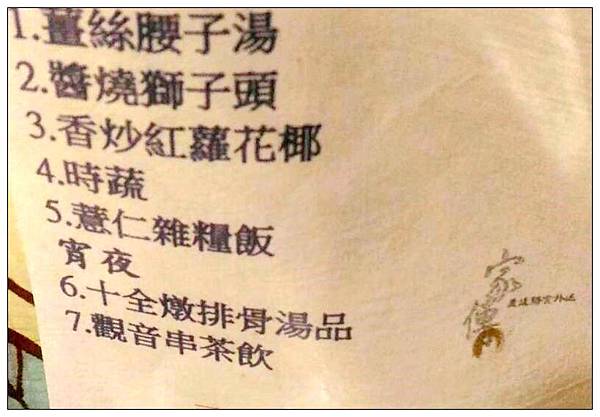 1.薑絲腰子湯
2.醬燒獅子頭
3.香炒紅蘿花椰
4.時蔬
5.薏仁雜糧飯
宵夜
6.十全燉排骨湯品
7.觀音串茶飲
家